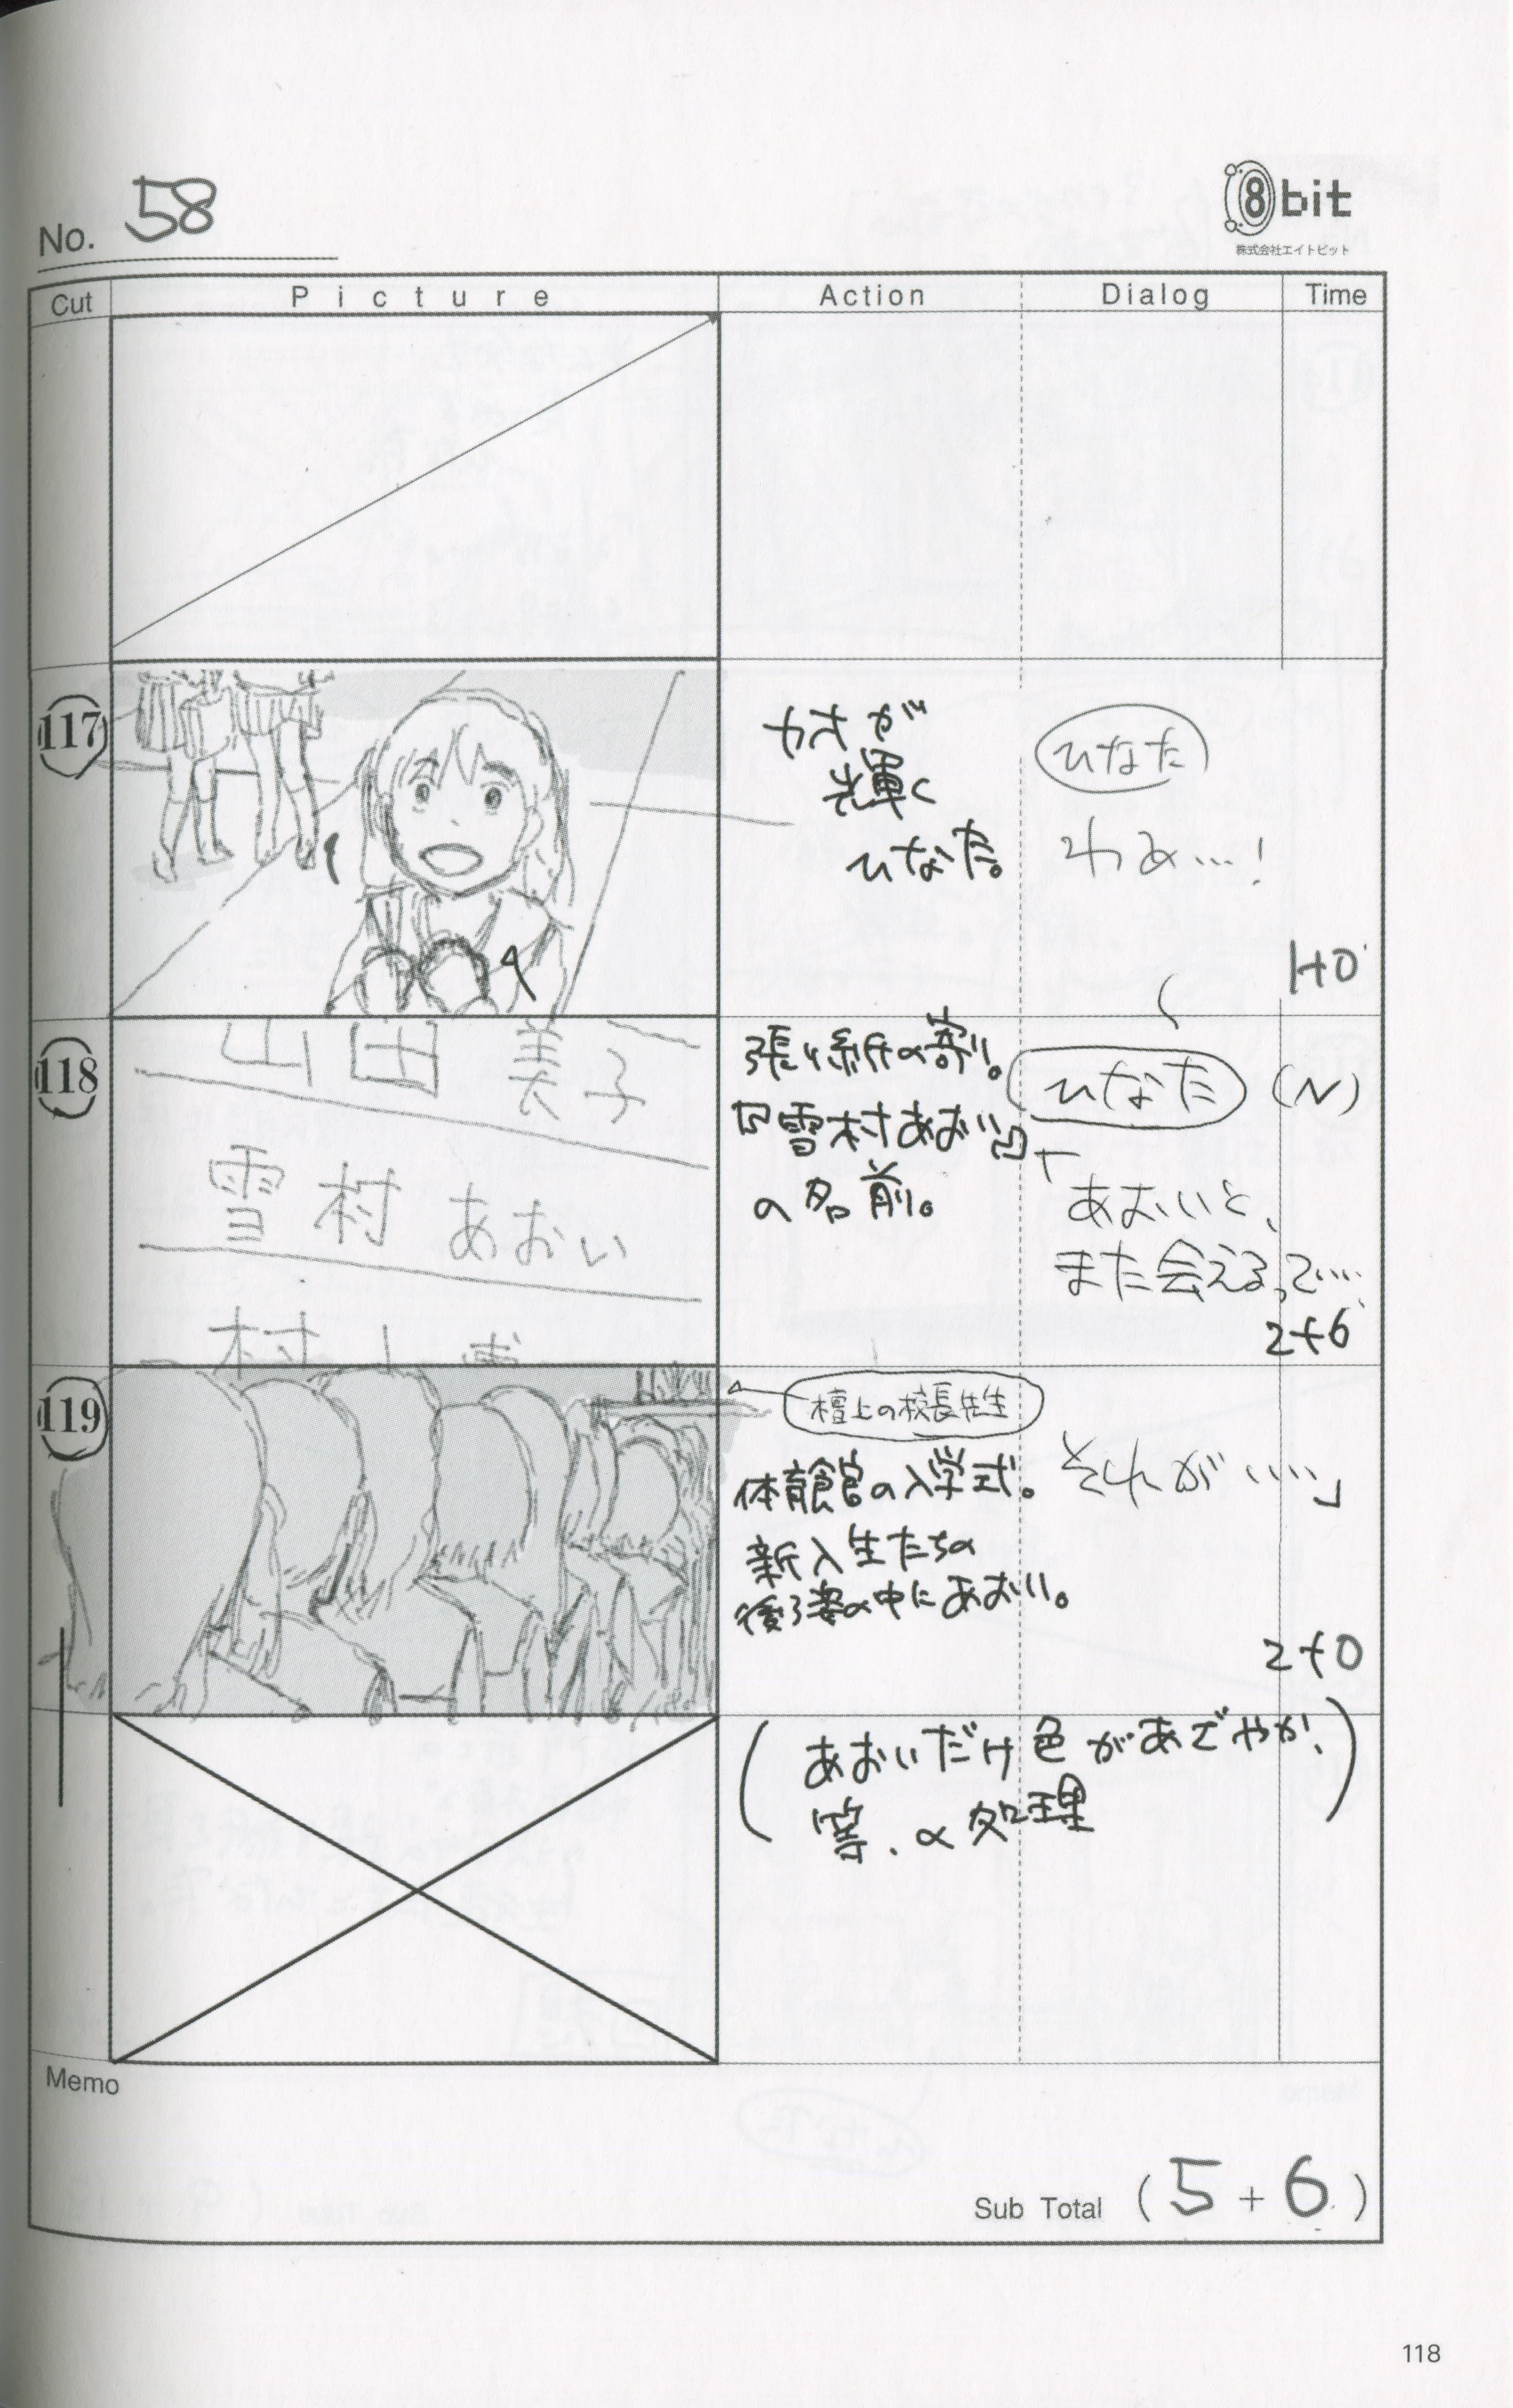 No. 58
8bit
株式会社エイトビット
Cut Picture Action Dialog Time
117
カオが
輝く
ひなた。
ひなた
わぁ…!
1+0
118
山田 美子
雪村 あおい
村上
張り紙の寄り。
『雪村あおい』
の名前。
ひなた (N)
「あおいと、
また会えるって…
2+6
119
壇上の校長先生
体育館の入学式。
新入生たちの
後ろ姿の中にあおい。
それが…」
2+0
(あおいだけ色があざやか、
等、の処理)
Memo
Sub Total (5+6)
118